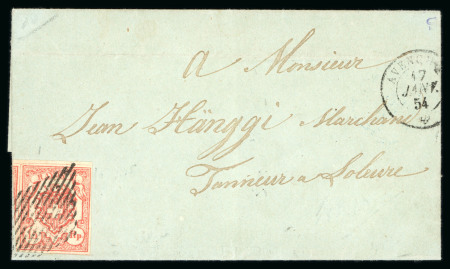 A Monsieur
AVENCHES
17
JANV.
54
Jean Hänggi Marchand
Tanneur a Soleure